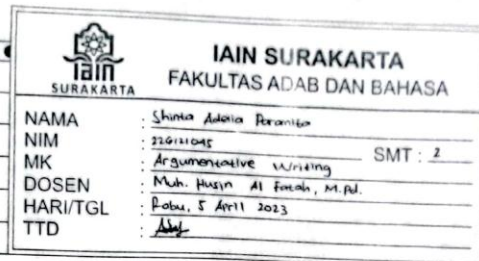 iain
SURAKARTA
IAIN SURAKARTA
FAKULTAS ADAB DAN BAHASA
NAMA : Shinta Adelia Paramita
NIM : 226121045 SMT : 2
MK : Argumentative Writing
DOSEN : Muh. Husin Al Fatah, M.Pd.
HARI/TGL : Rabu, 5 April 2023
TTD :